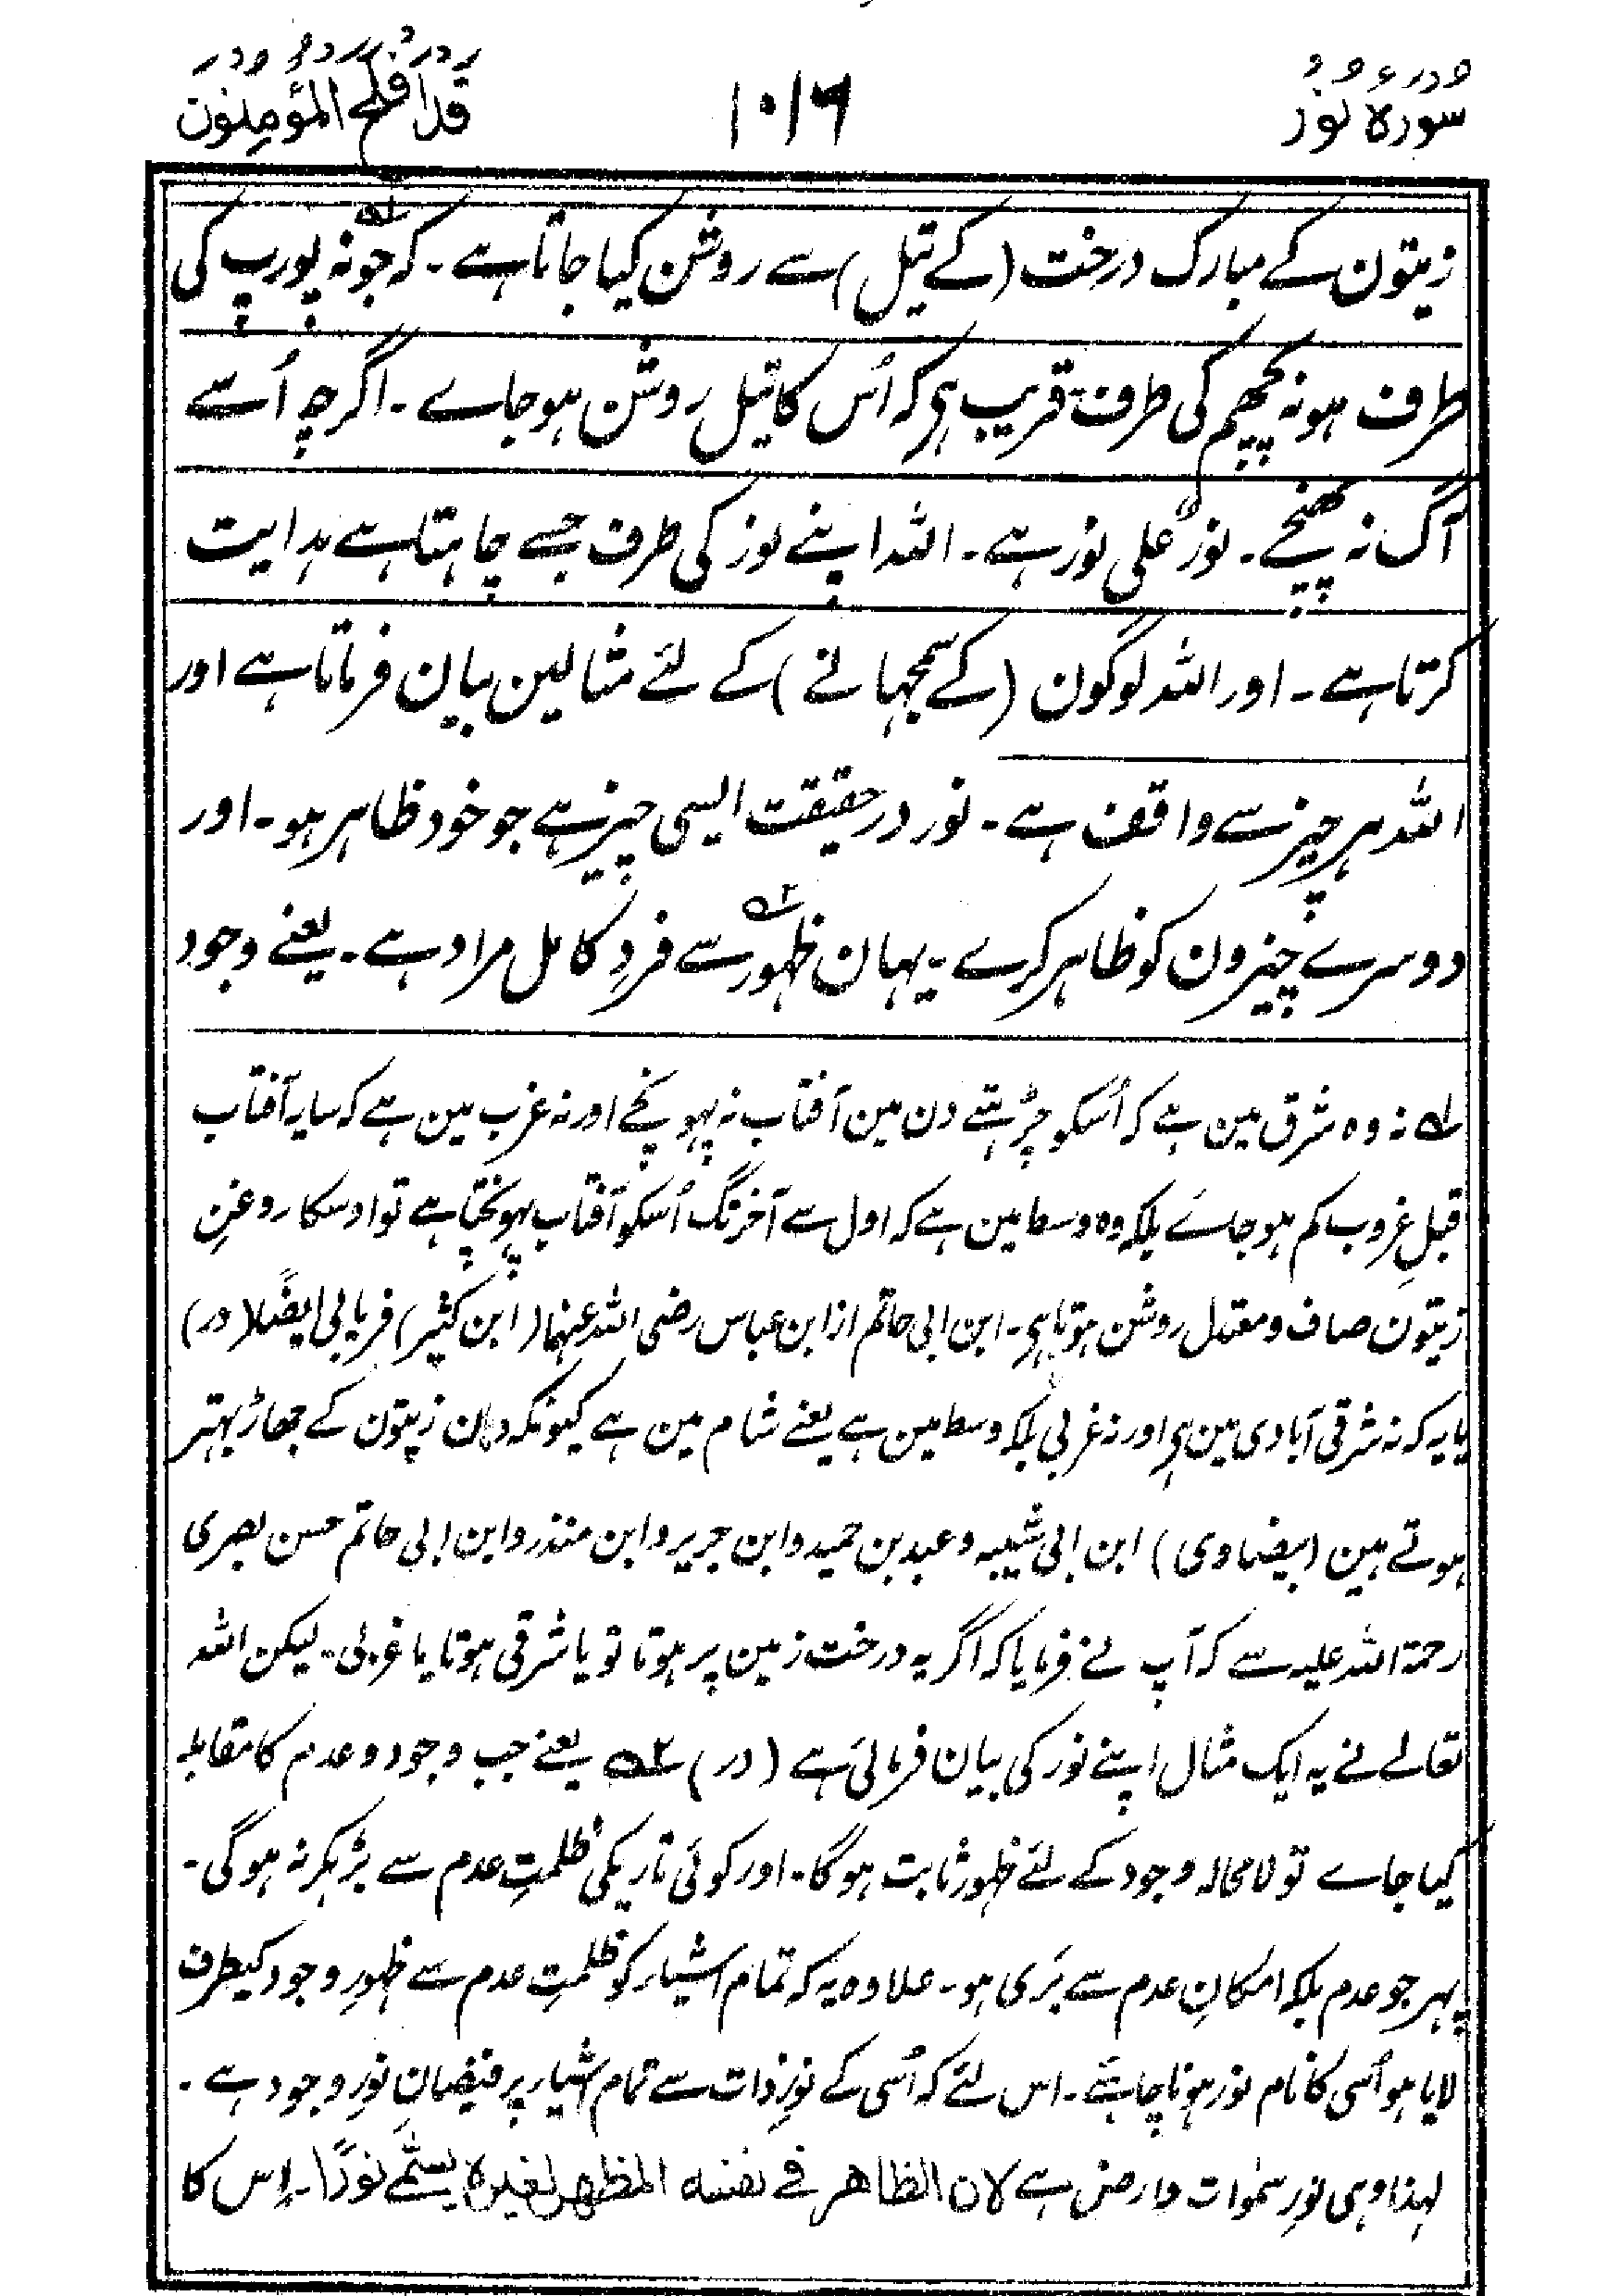 سورہ نور ۱۰۱۶ قد افلح المؤمنون
زیتون کے مبارک درخت (کے تیل) سے روشن کیا جاتا ہے۔ کہ جو ۱؎ نہ پورب کی
طرف ہو نہ پچھم کی طرف قریب ہی کہ اُس کا تیل روشن ہو جاے۔ اگرچہ اُسے
آگ نہ پھنچے۔ نورٌ علی نور ہے۔ اللہ اپنے نور کی طرف جسے چاہتا ہے ہدایت
کرتا ہے۔ اور اللہ لوگون (کے سمجہانے) کے لئے مثالین بیان فرماتا ہے اور
اللہ ہر چیز سے واقف ہے۔ نور در حقیقت ایسی چیز ہے جو خود ظاہر ہو۔ اور
دوسرے چیزون کو ظاہر کرے۔ یہان ظہور ۲؎ سے فردِ کامل مراد ہے۔ یعنے وجود
۱؎ نہ وہ شرق مین ہے کہ اُسکو چڑہتے دن مین آفتاب نہ پہونچے اور نہ غرب مین ہے کہ سایہ آفتاب
قبلِ غروب کم ہو جاے بلکہ وہ وسط مین ہے کہ اول سے آخر تک اُسکو آفتاب پہونچتا ہے تو اوسکا روغنِ
زیتون صاف و معتدل روشن ہوتا ہی۔ ابن ابی حاتم از ابن عباس رضی اللہ عنہما (ابن کثیر) فریابی ایضًا (در)
یا یہ کہ نہ شرقی آبادی مین ہی اور نہ غربی بلکہ وسط مین ہے یعنے شام مین ہے کیونکہ وہان زیتون کے جھاڑ بہتر
ہوتے ہین (بیضاوی) ابن ابی شیبہ و عبد بن حمید و ابن جریر و ابن منذر و ابن ابی حاتم حسن بصری
رحمۃ اللہ علیہ سے کہ آپ نے فرمایا کہ اگر یہ درخت زمین پر ہوتا تو یا شرقی ہوتا یا غربی۔ لیکن اللہ
تعالے نے یہ ایک مثال اپنے نور کی بیان فرمائی ہے (در) ۲؎ یعنے جب وجود و عدم کا مقابلہ
کیا جاے تو لا محالہ وجود کے لئے ظہور ثابت ہوگا۔ اور کوئی تاریکی ظلمتِ عدم سے بڑہکر نہ ہوگی۔
پہر جو عدم بلکہ امکانِ عدم سے بَری ہو۔ علاوہ یہ کہ تمام اشیار کو ظلمتِ عدم سے ظہورِ وجود کیطرف
لایا ہو اُسی کا نام نور ہونا چاہئے۔ اس لئے کہ اُسی کے نورِ ذات سے تمام اشیار پر فیضانِ نورِ وجود ہے۔
لہذا وہی نورِ سمٰوات و ارض ہے لان الظاهر فی نفسه المظهر لغیره یسمّٰے نورًا۔ اِس کا